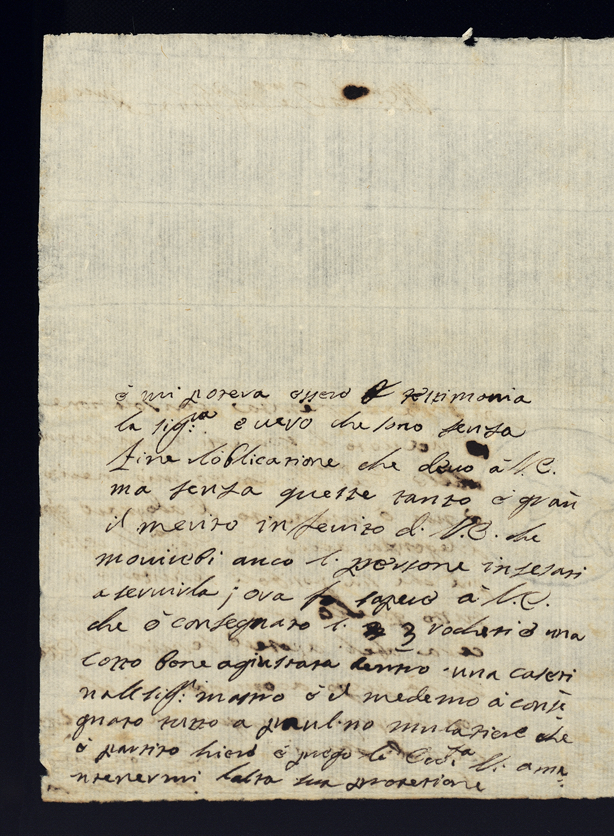 è mi poteva essere testimonia
la sig.ra è vero che sono senza
fine l'oblicatione che devo à V.E.
ma senza queste tanto è gran
il merito infinito di V.E. che
moverebi anco l. persone insesati
a servirla; ora fo sapere à V.E.
che ò consegnato l. 3 rocheti è una
cotto bone agiustata dentro una caseti
nal sig.r matio è il medemo à conse
gnato tutto a paulino mulatiere che
è partito hiere è prego la V. a ma
ntenermi l'alta sua protetione